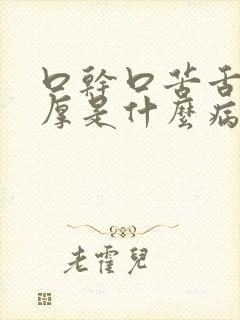 口幹口苦舌
厚是什麼病
老霍兒